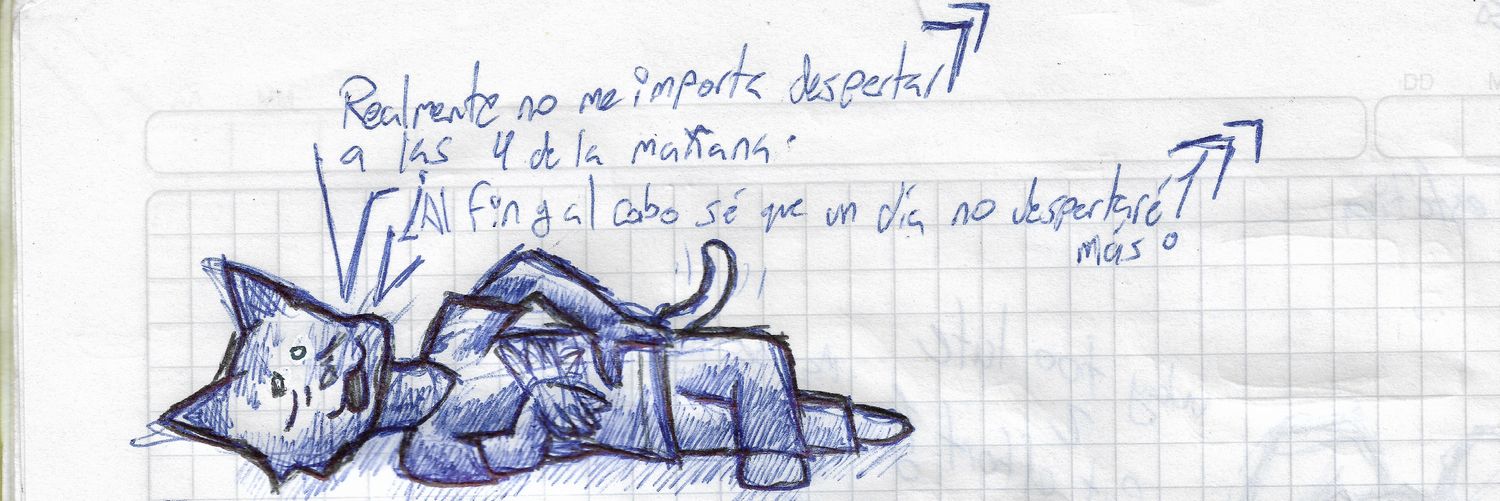 Realmente no me importa despertar
a las 4 de la mañana.
¡Al fin y al cabo sé que un día no despertaré
más!